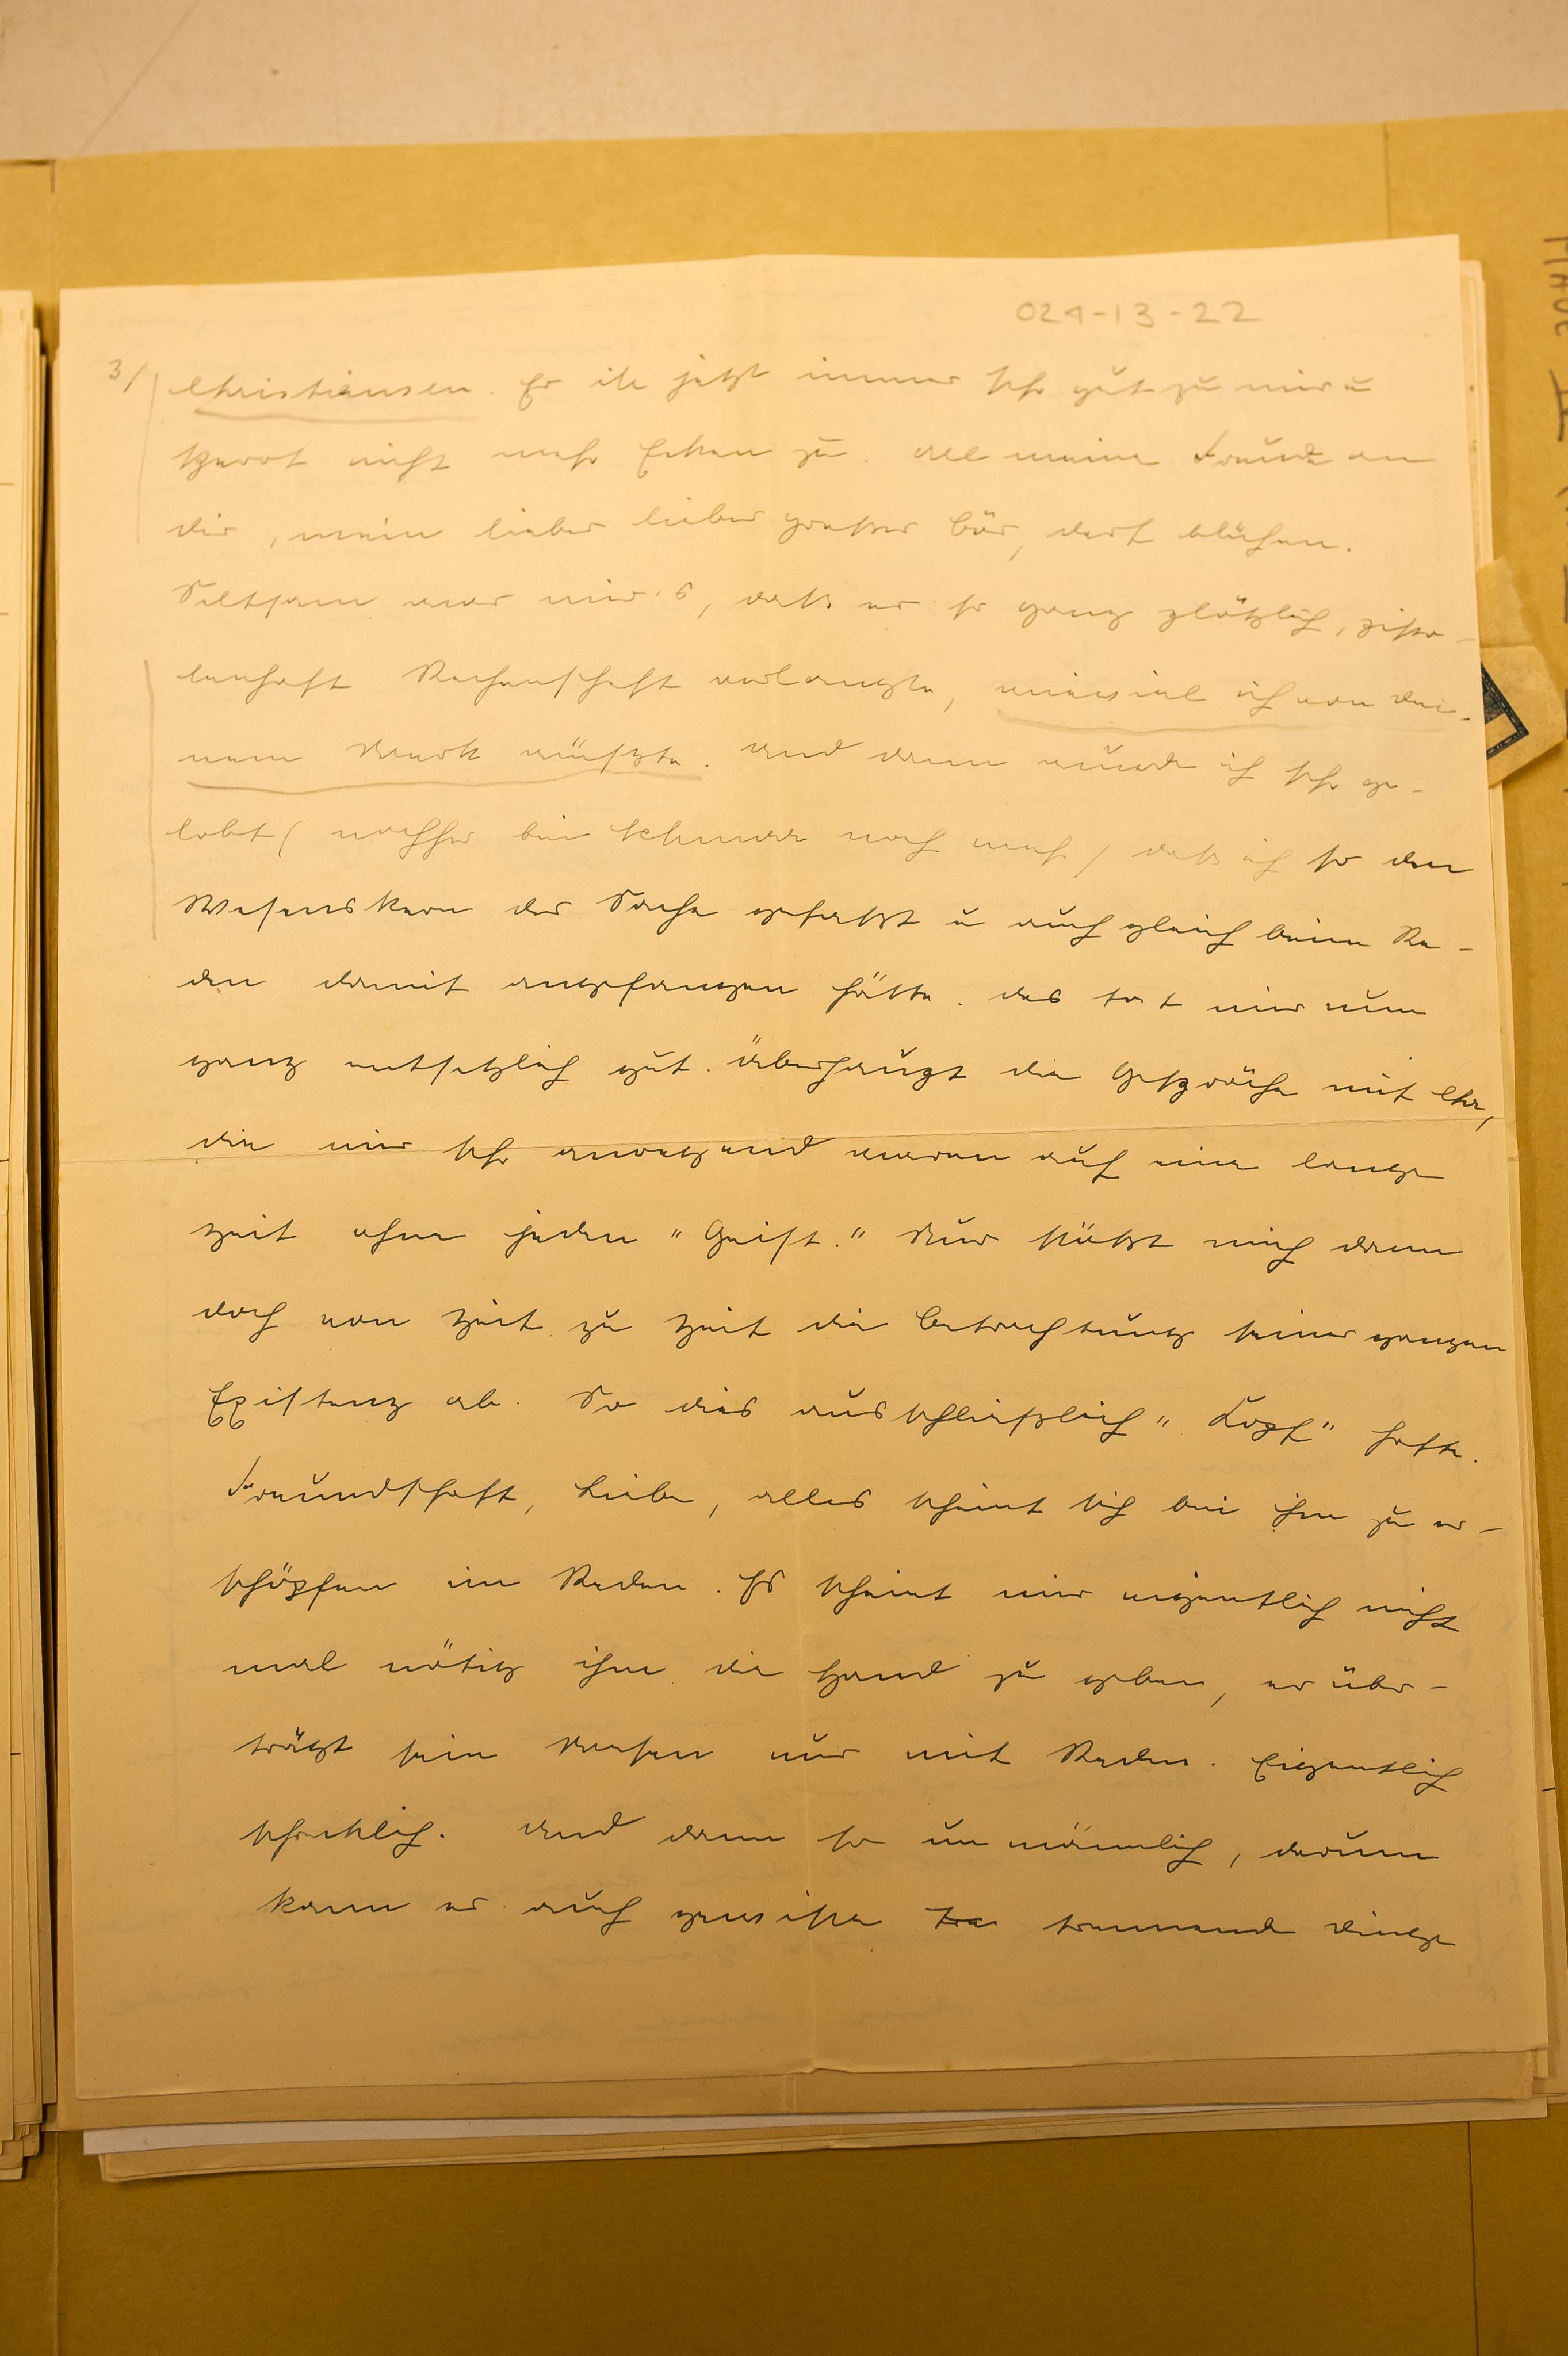 024-13-22
3/ Christiansen. Er ist jetzt immer sehr gut zu mir u
sperrt nicht mehr Ecken zu. All meine Freude an
dir, mein lieber lieber großer Bär, darf blühen.
Seltsam war mir's, dass er so ganz plötzlich, pisto-
lenhaft Rechenschaft verlangte, wieviel ich von dei-
nem Werk wüsste. Und dann wurde ich sehr ge-
lobt (nachher bei noch mehr) dass ich so den
Wesenskern der Sache gefasst u auch gleich beim Re-
den damit angefangen hätte. Das tat mir nun
ganz entsetzlich gut. Überhaupt die Gespräche mit Chr,
die mir sehr anregend waren auf eine lange
Zeit ohne jeden "Geist." Nur stösst mich dann
doch von Zeit zu Zeit die Betrachtung seiner ganzen
Existenz ab. So das ausschliesslich "Kopf" hafte.
Freundschaft, Liebe, alles scheint sich bei ihm zu er-
schöpfen im Reden. Es scheint mir eigentlich nicht
mal nötig ihm die Hand zu geben, er über-
trägt sein Wesen nur mit Reden. Eigentlich
schrecklich. Und dann so unmännlich, darum
kann er auch gewisse tre trennende Dinge